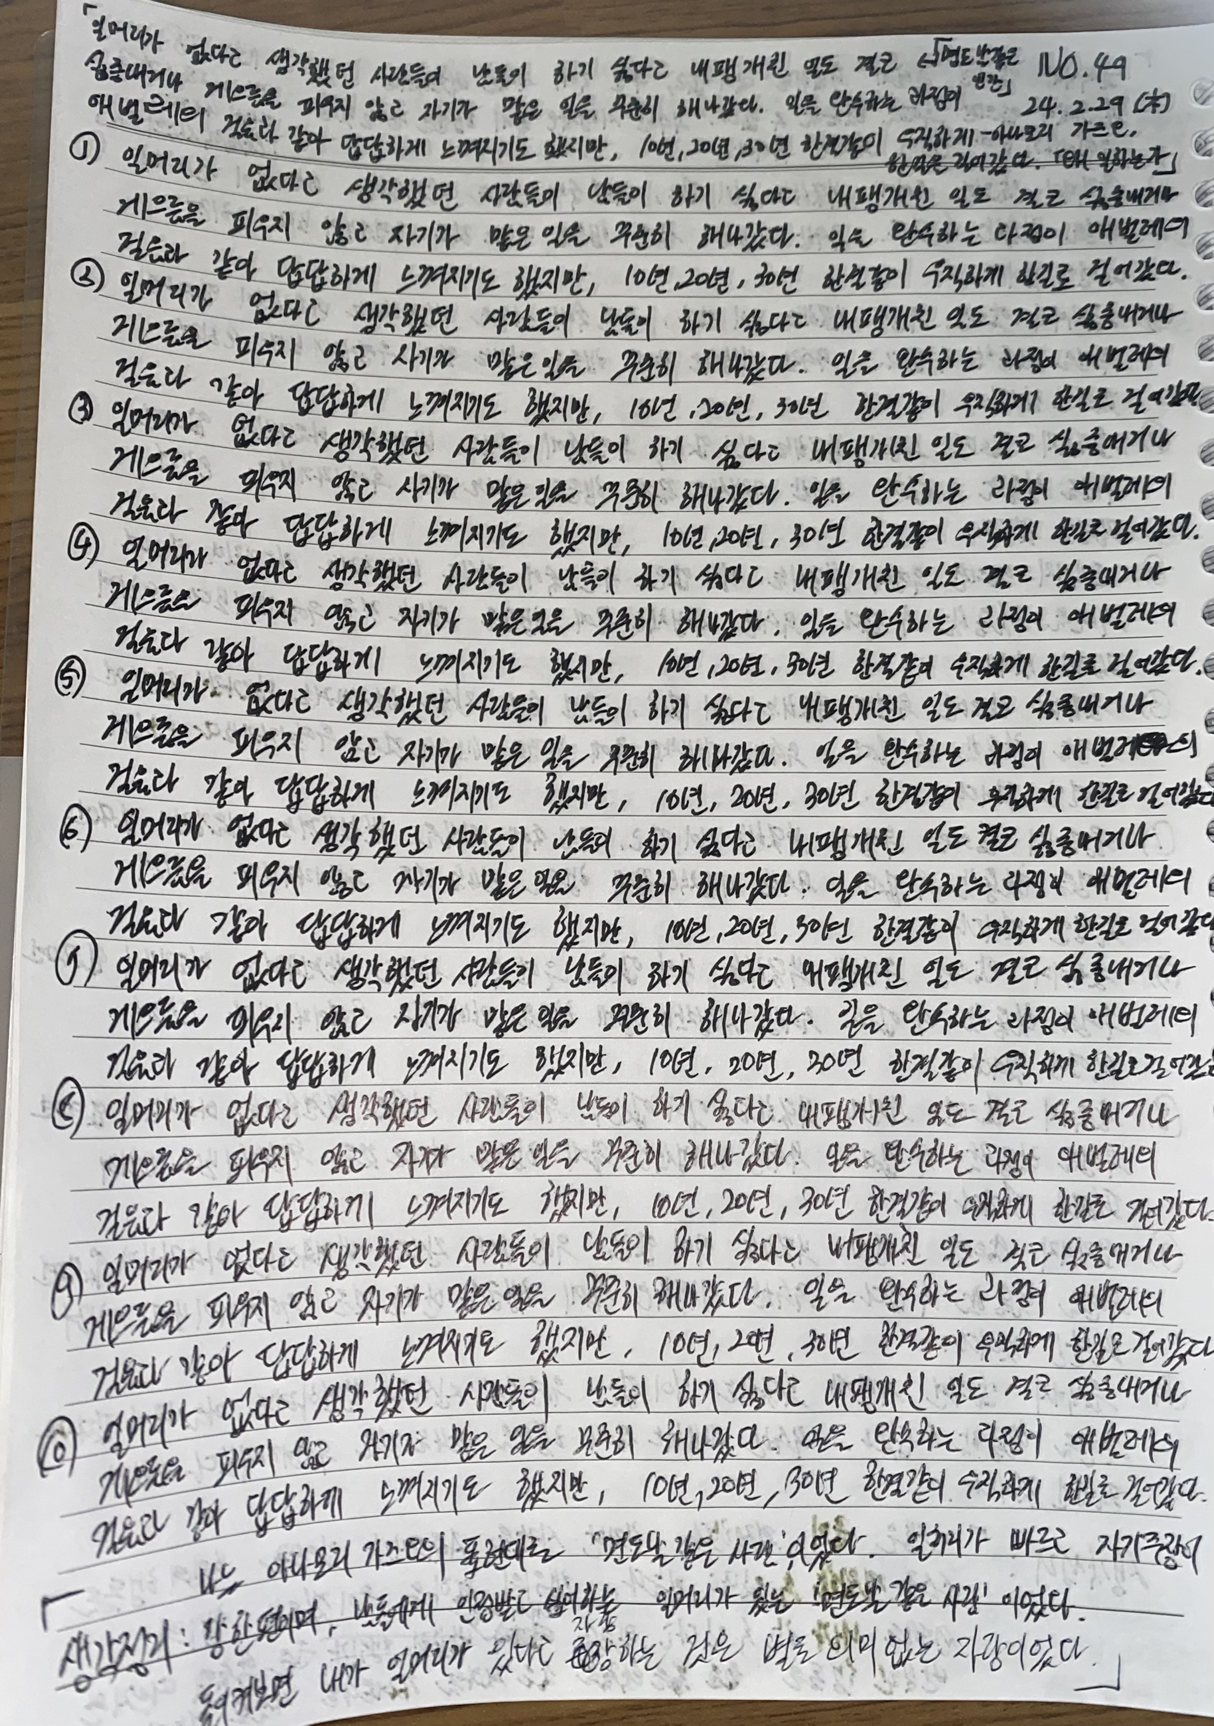 「일머리가 없다고 생각했던 사람들이 남들이 하기 싫다고 내팽개친 일도 결코 「면도날같은 인간」 NO.49
싫증내거나 게으름을 피우지 않고 자기가 맡은 일을 꾸준히 해나갔다. 일을 완수하는 과정이 24.2.29 (木)
애벌레의 걸음과 같아 답답하게 느껴지기도 했지만, 10년, 20년, 30년 한결같이 우직하게 -이나모리 가즈오,
한길을 걸어갔다. 「왜 일하는가」
① 일머리가 없다고 생각했던 사람들이 남들이 하기 싫다고 내팽개친 일도 결코 싫증내거나
게으름을 피우지 않고 자기가 맡은 일을 꾸준히 해나갔다. 일을 완수하는 과정이 애벌레의
걸음과 같아 답답하게 느껴지기도 했지만, 10년, 20년, 30년 한결같이 우직하게 한길로 걸어갔다.
② 일머리가 없다고 생각했던 사람들이 남들이 하기 싫다고 내팽개친 일도 결코 싫증내거나
게으름을 피우지 않고 자기가 맡은 일을 꾸준히 해나갔다. 일을 완수하는 과정이 애벌레의
걸음과 같아 답답하게 느껴지기도 했지만, 10년, 20년, 30년 한결같이 우직하게 한길로 걸어갔다
③ 일머리가 없다고 생각했던 사람들이 남들이 하기 싫다고 내팽개친 일도 결코 싫증내거나
게으름을 피우지 않고 자기가 맡은 일을 꾸준히 해나갔다. 일을 완수하는 과정이 애벌레의
걸음과 같아 답답하게 느껴지기도 했지만, 10년, 20년, 30년 한결같이 우직하게 한길로 걸어갔다.
④ 일머리가 없다고 생각했던 사람들이 남들이 하기 싫다고 내팽개친 일도 결코 싫증내거나
게으름을 피우지 않고 자기가 맡은 일을 꾸준히 해나갔다. 일을 완수하는 과정이 애벌레의
걸음과 같아 답답하게 느껴지기도 했지만, 10년, 20년, 30년 한결같이 우직하게 한길로 걸어갔다.
⑤ 일머리가 없다고 생각했던 사람들이 남들이 하기 싫다고 내팽개친 일도 결코 싫증내거나
게으름을 피우지 않고 자기가 맡은 일을 꾸준히 해나갔다. 일을 완수하는 과정이 애벌레의
걸음과 같아 답답하게 느껴지기도 했지만, 10년, 20년, 30년 한결같이 우직하게 한길로 걸어갔다
⑥ 일머리가 없다고 생각했던 사람들이 남들이 하기 싫다고 내팽개친 일도 결코 싫증내거나
게으름을 피우지 않고 자기가 맡은 일을 꾸준히 해나갔다. 일을 완수하는 과정이 애벌레의
걸음과 같아 답답하게 느껴지기도 했지만, 10년, 20년, 30년 한결같이 우직하게 한길로 걸어갔다
⑦ 일머리가 없다고 생각했던 사람들이 남들이 하기 싫다고 내팽개친 일도 결코 싫증내거나
게으름을 피우지 않고 자기가 맡은 일을 꾸준히 해나갔다. 일을 완수하는 과정이 애벌레의
걸음과 같아 답답하게 느껴지기도 했지만, 10년, 20년, 30년 한결같이 우직하게 한길로 걸어갔
⑧ 일머리가 없다고 생각했던 사람들이 남들이 하기 싫다고 내팽개친 일도 결코 싫증내거나
게으름을 피우지 않고 자기가 맡은 일을 꾸준히 해나갔다. 일을 완수하는 과정이 애벌레의
걸음과 같아 답답하게 느껴지기도 했지만, 10년, 20년, 30년 한결같이 우직하게 한길로 걸어갔다
⑨ 일머리가 없다고 생각했던 사람들이 남들이 하기 싫다고 내팽개친 일도 결코 싫증내거나
게으름을 피우지 않고 자기가 맡은 일을 꾸준히 해나갔다. 일을 완수하는 과정이 애벌레의
걸음과 같아 답답하게 느껴지기도 했지만, 10년, 20년, 30년 한결같이 우직하게 한길로 걸어갔다
⑩ 일머리가 없다고 생각했던 사람들이 남들이 하기 싫다고 내팽개친 일도 결코 싫증내거나
게으름을 피우지 않고 자기가 맡은 일을 꾸준히 해나갔다. 일을 완수하는 과정이 애벌레의
걸음과 같아 답답하게 느껴지기도 했지만, 10년, 20년, 30년 한결같이 우직하게 한길로 걸어갔다.
「 나는 이나모리 가즈오의 표현대로 '면도날 같은 사람'이었다. 일머리가 빠르고 자기주장이
생각정리: 강한편이며, 남들에게 인정받고 싶어하는 일머리가 있는 '면도날 같은 사람'이었다.
돌이켜보면 내가 일머리가 있다고 자랑하는 것은 별로 의미없는 자랑이었다.」